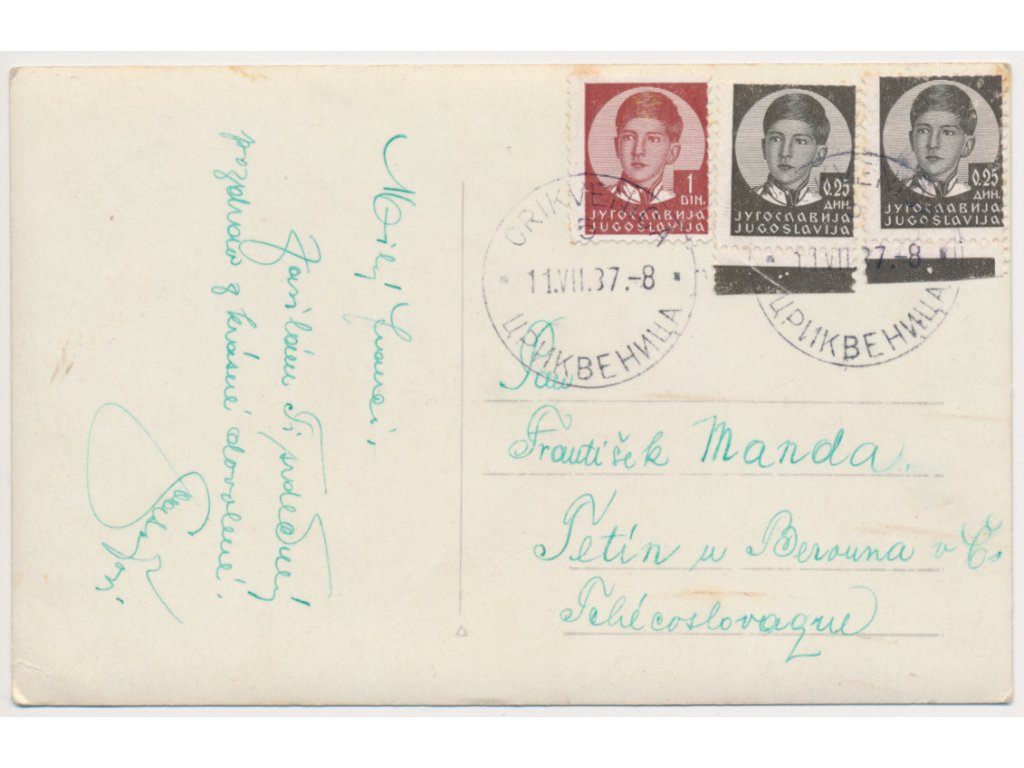 Milý Franci,
Zasílám Ti srdečný
pozdrav z krásné dovolené.
1
DIN.
ЈУГОСЛАВИЈА
JUGOSLAVIJA
0.25
ДИН.
ЈУГОСЛАВИЈА
JUGOSLAVIJA
0.25
ДИН.
ЈУГОСЛАВИЈА
JUGOSLAVIJA
CRIKVENICA
11.VII.37.-8
ЦРИКВЕНИЦА
11.VII.37.-8
ЦРИКВЕНИЦА
Pan
František Manda
Tetín u Berouna v Č.
Tchécoslovaque